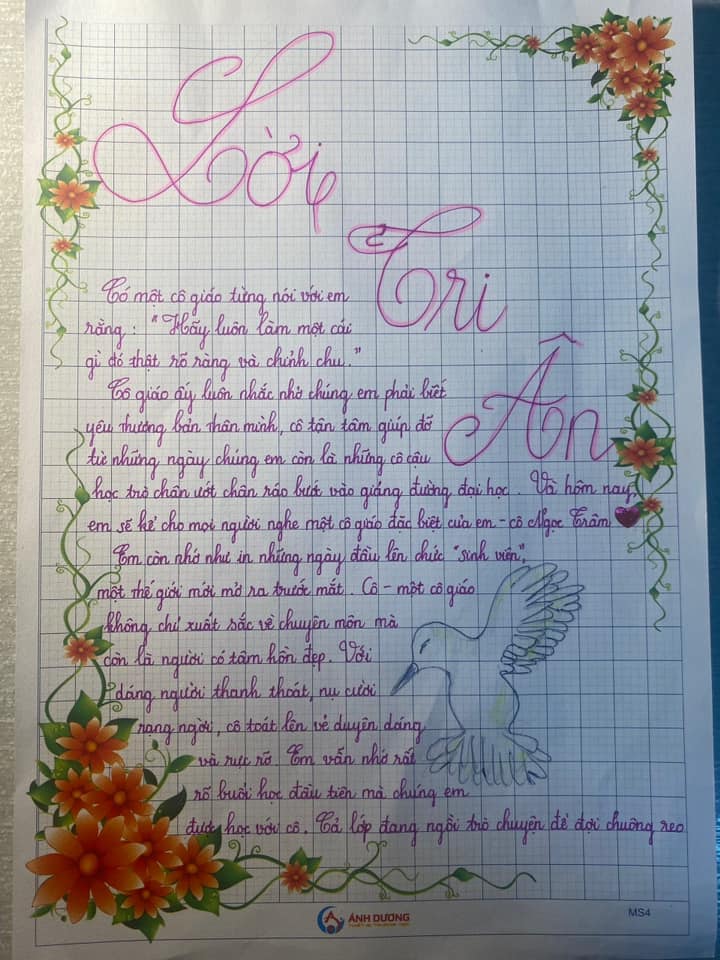 Lời
Tri
Ân
Có một cô giáo từng nói với em
rằng : “Hãy luôn làm một cái
gì đó thật rõ ràng và chỉnh chu.”
Cô giáo ấy luôn nhắc nhở chúng em phải biết
yêu thương bản thân mình, cô tận tâm giúp đỡ
từ những ngày chúng em còn là những cô cậu
học trò chân ướt chân ráo bước vào giảng đường đại học. Và hôm nay,
em sẽ kể cho mọi người nghe một cô giáo đặc biệt của em - cô Ngọc Trâm
Em còn nhớ như in những ngày đầu lên chức “sinh viên”,
một thế giới mới mở ra trước mắt. Cô - một cô giáo
không chỉ xuất sắc về chuyên môn mà
còn là người có tâm hồn đẹp. Với
dáng người thanh thoát, nụ cười
rạng ngời, cô toát lên vẻ duyên dáng
và rực rỡ. Em vẫn nhớ rất
rõ buổi học đầu tiên mà chúng em
được học với cô. Cả lớp đang ngồi trò chuyện để đợi chuông reo
ÁNH DƯƠNG
MS4